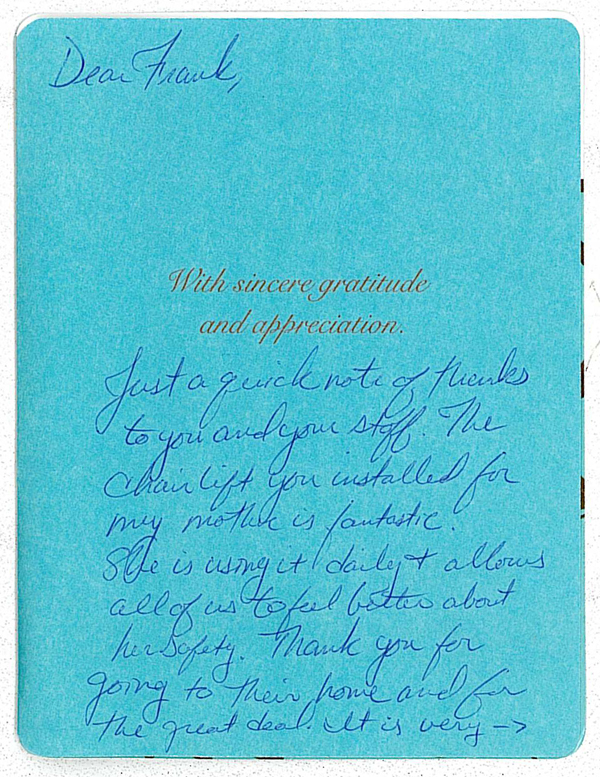 Dear Frank,
With sincere gratitude
and appreciation.
Just a quick note of thanks
to you and your staff. The
Chair lift you installed for
my mother is fantastic.
She is using it daily + allows
all of us to feel better about
her safety. Thank you for
going to their home and for
the great deal. It is very ->